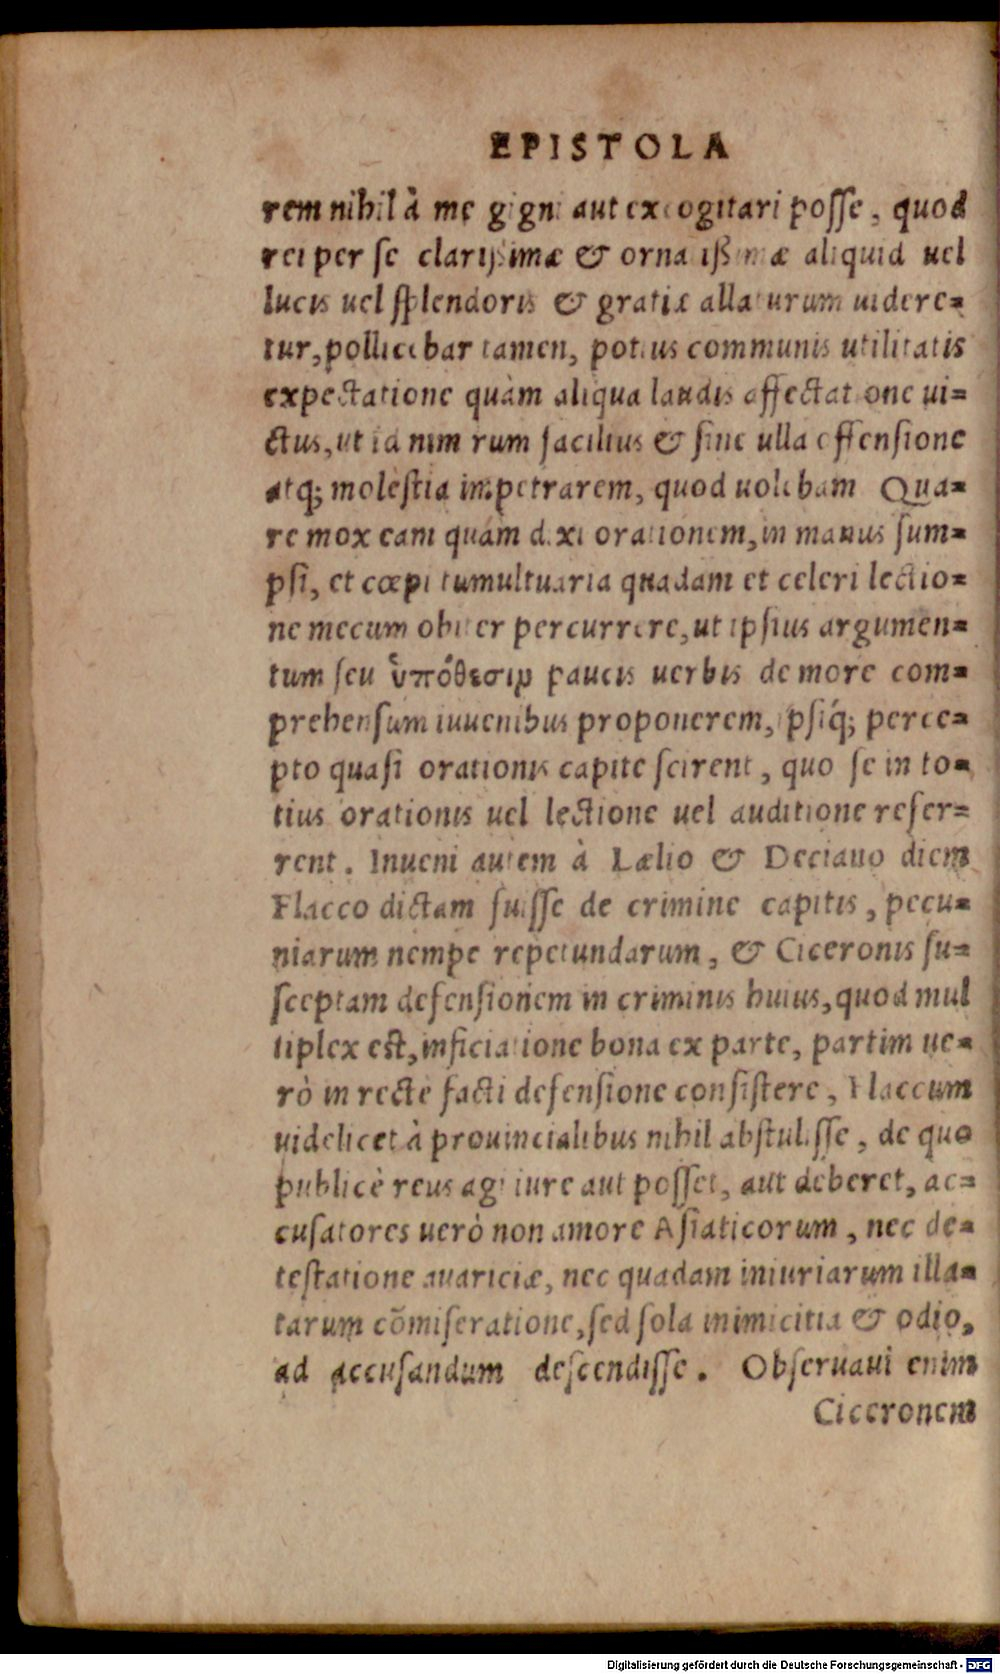 EPISTOLA
rem nihil à me gigni aut excogitari posse, quod
rei per se clarißimæ & ornatißimæ aliquid uel
lucis uel splendoris & gratiæ allaturum uidere=
tur, pollicebar tamen, potius communis utilitatis
expectatione quàm aliqua laudis affectatione ui=
ctus, ut id nimirum facilius & sine ulla offensione
atq; molestia impetrarem, quod uolebam Qua=
re mox eam quàm dixi orationem, in manus sum=
psi, et cœpi tumultuaria quadam et celeri lectio=
ne mecum obiter percurrere, ut ipsius argumen=
tum seu ὑπόθεσιμ paucis uerbis de more com=
prehensum iuuenibus proponerem, ipsiq́; perce=
pto quasi orationis capite scirent, quo se in to=
tius orationis uel lectione uel auditione refer=
rent. Inueni autem à Lælio & Deciano diem
Flacco dictam fuisse de crimine capitis, pecu=
niarum nempe repetundarum, & Ciceronis su=
sceptam defensionem in criminis huius, quod mul
tiplex est, inficiatione bona ex parte, partim ue=
rò in recte facti defensione consistere, Flaccum
uidelicet à prouincialibus nihil abstulisse, de quo
publicè reus agi iure aut posset, aut deberet, ac=
cusatores uerò non amore Asiaticorum, nec de=
testatione auariciæ, nec quadam iniuriarum illa=
tarum cõmiseratione, sed sola inimicitia & odio,
ad accusandum descendisse. Obseruaui enim
Ciceronem
Digitalisierung gefördert durch die Deutsche Forschungsgemeinschaft - DFG